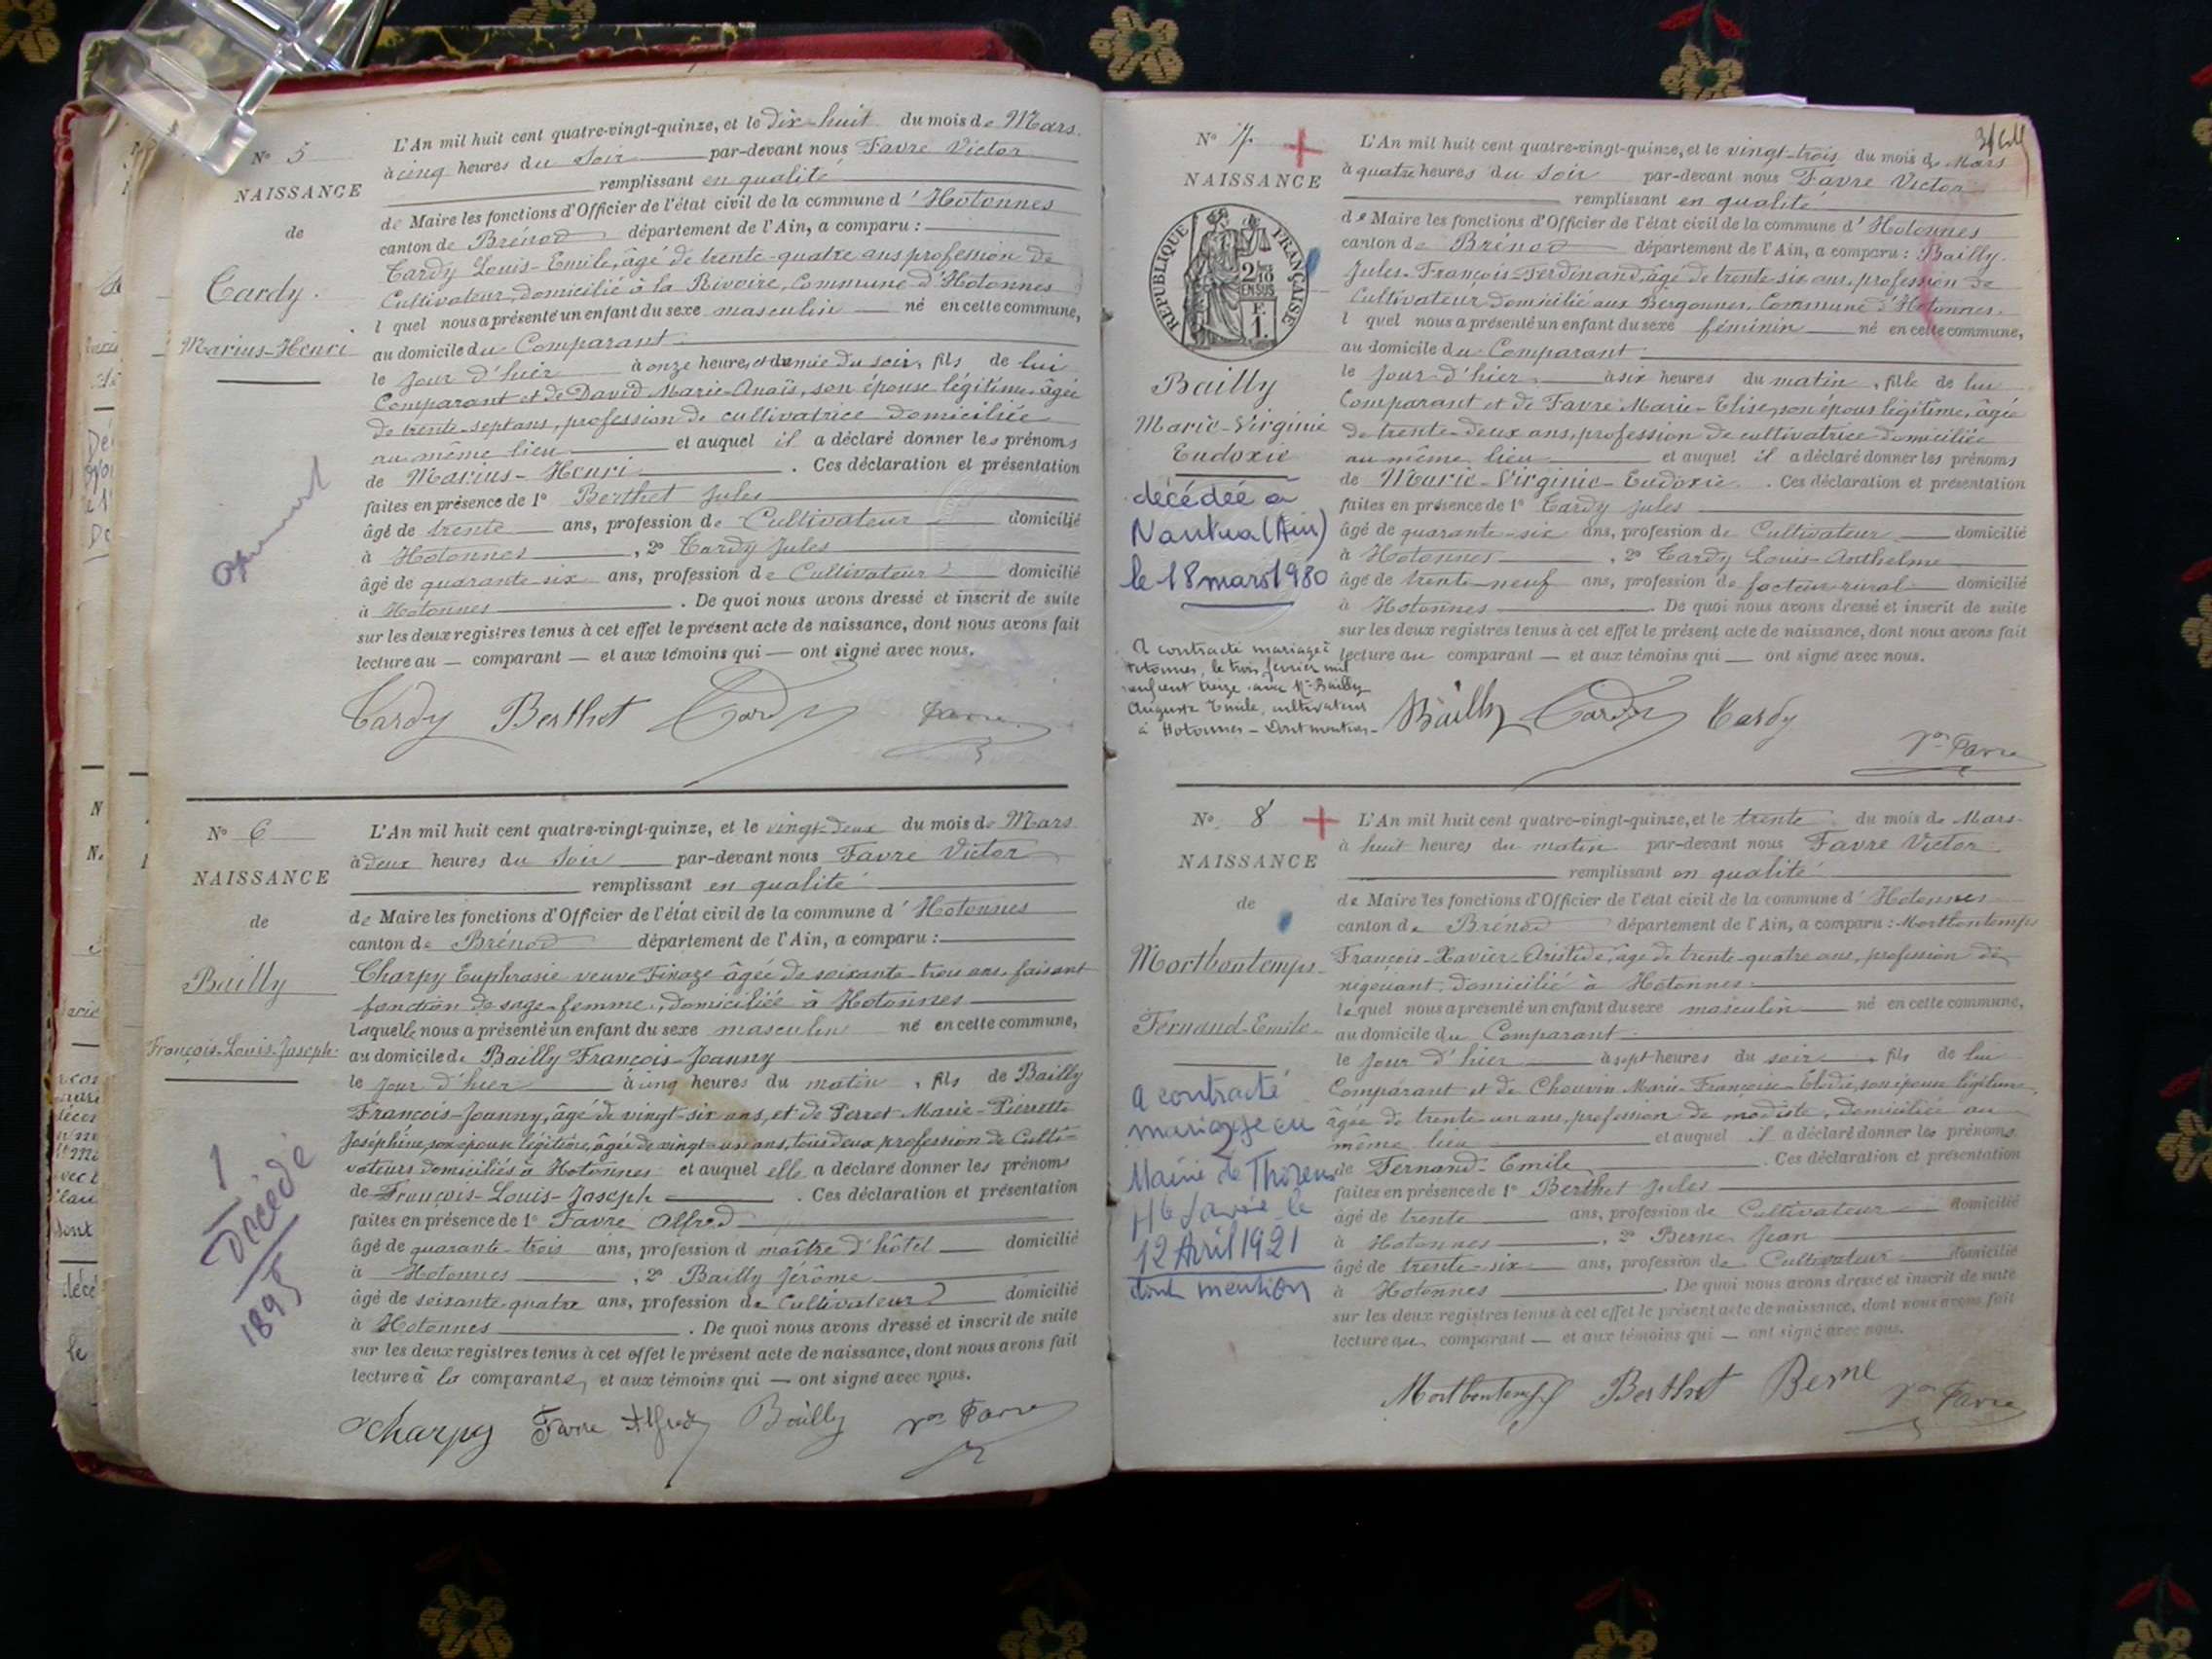 N° 5
NAISSANCE
de
Tardy
Marius-Henri
L'An mil huit cent quatre-vingt-quinze, et le dix-huit du mois de Mars
à cinq heures du soir par-devant nous Favre Victor
remplissant en qualité
de Maire les fonctions d'Officier de l'état civil de la commune d'Hotonnes
canton de Brénod département de l'Ain, a comparu :
Tardy Louis-Emile, âgé de trente-quatre ans profession de
Cultivateur, domicilié à la Rivoire, Commune d'Hotonnes
l quel nous a présenté un enfant du sexe masculin né en cette commune,
au domicile du Comparant
le jour d'hier à onze heures et demie du soir, fils de lui
Comparant et de David Marie-Anaïs, son épouse légitime, âgée
de trente-sept ans, profession de cultivatrice domiciliée
au même lieu et auquel il a déclaré donner les prénoms
de Marius-Henri. Ces déclaration et présentation
faites en présence de 1° Berthet Jules
âgé de trente ans, profession de Cultivateur domicilié
à Hotonnes, 2° Tardy Jules
âgé de quarante-six ans, profession de Cultivateur domicilié
à Hotonnes. De quoi nous avons dressé et inscrit de suite
sur les deux registres tenus à cet effet le présent acte de naissance, dont nous avons fait
lecture au — comparant — et aux témoins qui — ont signé avec nous.
Tardy Berthet Tardy Favre
N° 6
NAISSANCE
de
Bailly
François-Louis-Joseph
Décédé
1895
L'An mil huit cent quatre-vingt-quinze, et le vingt-deux du mois de Mars
à deux heures du soir par-devant nous Favre Victor
remplissant en qualité
de Maire les fonctions d'Officier de l'état civil de la commune d'Hotonnes
canton de Brénod département de l'Ain, a comparu :
Charpy Euphrasie veuve Finaze âgée de soixante-trois ans, faisant
fonction de sage-femme, domiciliée à Hotonnes
laquelle nous a présenté un enfant du sexe masculin né en cette commune,
au domicile de Bailly François-Joanny
le jour d'hier à cinq heures du matin, fils de Bailly
François-Joanny, âgé de vingt-six ans, et de Perret Marie-Pierrette
Joséphine, son épouse légitime, âgée de vingt-un ans, tous deux profession de Culti-
vateurs domiciliés à Hotonnes et auquel elle a déclaré donner les prénoms
de François-Louis-Joseph. Ces déclaration et présentation
faites en présence de 1° Favre Alfred
âgé de quarante-trois ans, profession d maître d'hôtel domicilié
à Hotonnes, 2° Bailly Jérôme
âgé de soixante-quatre ans, profession de Cultivateur domicilié
à Hotonnes. De quoi nous avons dressé et inscrit de suite
sur les deux registres tenus à cet effet le présent acte de naissance, dont nous avons fait
lecture à la comparante, et aux témoins qui — ont signé avec nous.
Charpy Favre Alfred Bailly Vor Favre
N° 7
NAISSANCE
REPUBLIQUE FRANÇAISE
2/10 EN SUS
F. 1.
Bailly
Marie-Virginie
Eudoxie
décédée à
Nantua (Ain)
le 18 mars 1980
A contracté mariage à
Hotonnes, le trois février mil
neuf cent treize avec Mr Bailly
Auguste Emile, cultivateur
à Hotonnes - Dont mention -
L'An mil huit cent quatre-vingt-quinze, et le vingt-trois du mois de Mars
à quatre heures du soir par-devant nous Favre Victor
remplissant en qualité
de Maire les fonctions d'Officier de l'état civil de la commune d'Hotonnes
canton de Brénod département de l'Ain, a comparu : Bailly
Jules-François-Ferdinand, âgé de trente-six ans, profession de
Cultivateur domicilié aux Bergonnes, Commune d'Hotonnes
l quel nous a présenté un enfant du sexe féminin né en cette commune,
au domicile du Comparant
le jour d'hier à six heures du matin, fille de lui
Comparant et de Favre Marie-Elise, son épouse légitime, âgée
de trente-deux ans, profession de cultivatrice domiciliée
au même lieu et auquel il a déclaré donner les prénoms
de Marie-Virginie-Eudoxie. Ces déclaration et présentation
faites en présence de 1° Tardy Jules
âgé de quarante-six ans, profession de Cultivateur domicilié
à Hotonnes, 2° Tardy Louis-Anthelme
âgé de trente-neuf ans, profession de facteur rural domicilié
à Hotonnes. De quoi nous avons dressé et inscrit de suite
sur les deux registres tenus à cet effet le présent acte de naissance, dont nous avons fait
lecture au comparant — et aux témoins qui — ont signé avec nous.
Bailly Tardy Tardy
Vor Favre
N° 8
NAISSANCE
de
Mortbontemps
Fernand-Emile
a contracté
mariage en
Mairie de Thorens
Hte Savoie le
12 Avril 1921
dont mention
L'An mil huit cent quatre-vingt-quinze, et le trente du mois de Mars
à huit heures du matin par-devant nous Favre Victor
remplissant en qualité
de Maire les fonctions d'Officier de l'état civil de la commune d'Hotonnes
canton de Brénod département de l'Ain, a comparu : Mortbontemps
François-Xavier-Aristide, âgé de trente-quatre ans, profession de
négociant, domicilié à Hotonnes
lequel nous a présenté un enfant du sexe masculin né en cette commune,
au domicile du Comparant
le jour d'hier à sept heures du soir, fils de lui
Comparant et de Chouvin Marie-Françoise-Elodie, son épouse légitime,
âgée de trente-un ans, profession de modiste, domiciliée au
même lieu et auquel il a déclaré donner les prénoms
de Fernand-Emile. Ces déclaration et présentation
faites en présence de 1° Berthet Jules
âgé de trente ans, profession de Cultivateur domicilié
à Hotonnes, 2° Berne Jean
âgé de trente-six ans, profession de Cultivateur domicilié
à Hotonnes. De quoi nous avons dressé et inscrit de suite
sur les deux registres tenus à cet effet le présent acte de naissance, dont nous avons fait
lecture au comparant — et aux témoins qui — ont signé avec nous.
Mortbontemps Berthet Berne Vor Favre